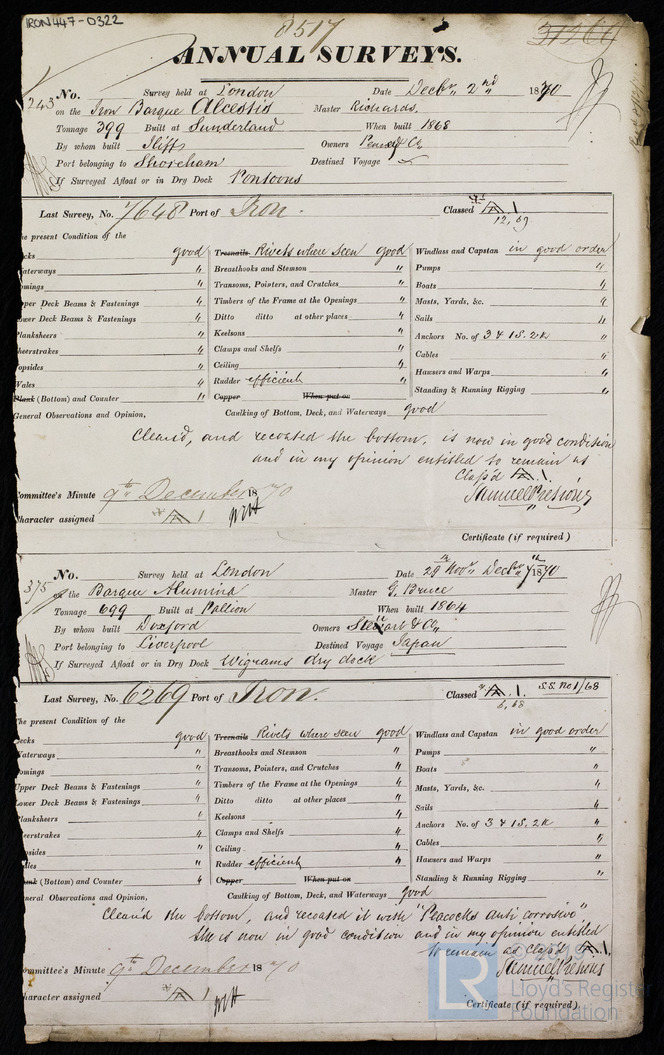 IRON447-0322
8517
31266
ANNUAL SURVEYS.
243 No. Survey held at London Date Decbr. 2nd 1870
on the Iron Barque Alcestis Master Richards.
Tonnage 399 Built at Sunderland When built 1868
By whom built Iliff Owners & Co
Port belonging to Shoreham Destined Voyage
If Surveyed Afloat or in Dry Dock Pontoons
Last Survey, No. 7648 Port of Iron. Classed A 1
12,69
he present Condition of the
ecks good Treenails Rivets where seen good Windlass and Capstan in good order
Waterways " Breasthooks and Stemson " Pumps "
omings " Transoms, Pointers, and Crutches " Boats "
pper Deck Beams & Fastenings " Timbers of the Frame at the Openings " Masts, Yards, &c. "
ower Deck Beams & Fastenings " Ditto ditto at other places " Sails "
Planksheers " Keelsons " Anchors No. of 3 & 1S. 2K "
heerstrakes " Clamps and Shelfs " Cables "
opsides " Ceiling " Hawsers and Warps "
Wales " Rudder efficient " Standing & Running Rigging "
Plank (Bottom) and Counter " Copper When put on
General Observations and Opinion, Caulking of Bottom, Deck, and Waterways good
Clean'd, and recoated the bottom, is now in good condition
and in my opinion entitled to remain as
Class'd A 1.
Committee's Minute 9th December 1870 Samuel Pretious
haracter assigned A 1
Certificate (if required)
375 No. Survey held at London Date 29 Novr. Decbr. 1 1870
the Barque Alumina Master G. Bruce
Tonnage 699 Built at Pallion When built 1864
By whom built Doxford Owners Stewart & Co
Port belonging to Liverpool Destined Voyage Japan
If Surveyed Afloat or in Dry Dock Wigrams dry dock
Last Survey, No. 6269 Port of Iron. Classed A 1. S.S. No 1/68
6,68
he present Condition of the
ecks good Treenails Rivets where seen good Windlass and Capstan in good order
Waterways " Breasthooks and Stemson " Pumps "
omings " Transoms, Pointers, and Crutches " Boats "
Upper Deck Beams & Fastenings " Timbers of the Frame at the Openings " Masts, Yards, &c. "
Lower Deck Beams & Fastenings " Ditto ditto at other places " Sails "
Planksheers " Keelsons " Anchors No. of 3 & 1S. 2K "
eerstrakes " Clamps and Shelfs " Cables "
psides " Ceiling " Hawsers and Warps "
les " Rudder efficient " Standing & Running Rigging "
unk (Bottom) and Counter " Copper When put on
neral Observations and Opinion, Caulking of Bottom, Deck, and Waterways good
Clean'd the bottom, and recoated it with "Peacocks anti corrosive"
She is now in good condition and in my opinion entitled
to remain as Class'd A 1.
ommittee's Minute 9th December 1870 Samuel Pretious
haracter assigned A 1
Certificate (if required).
© 2019
LR
Lloyd's Register
Foundation